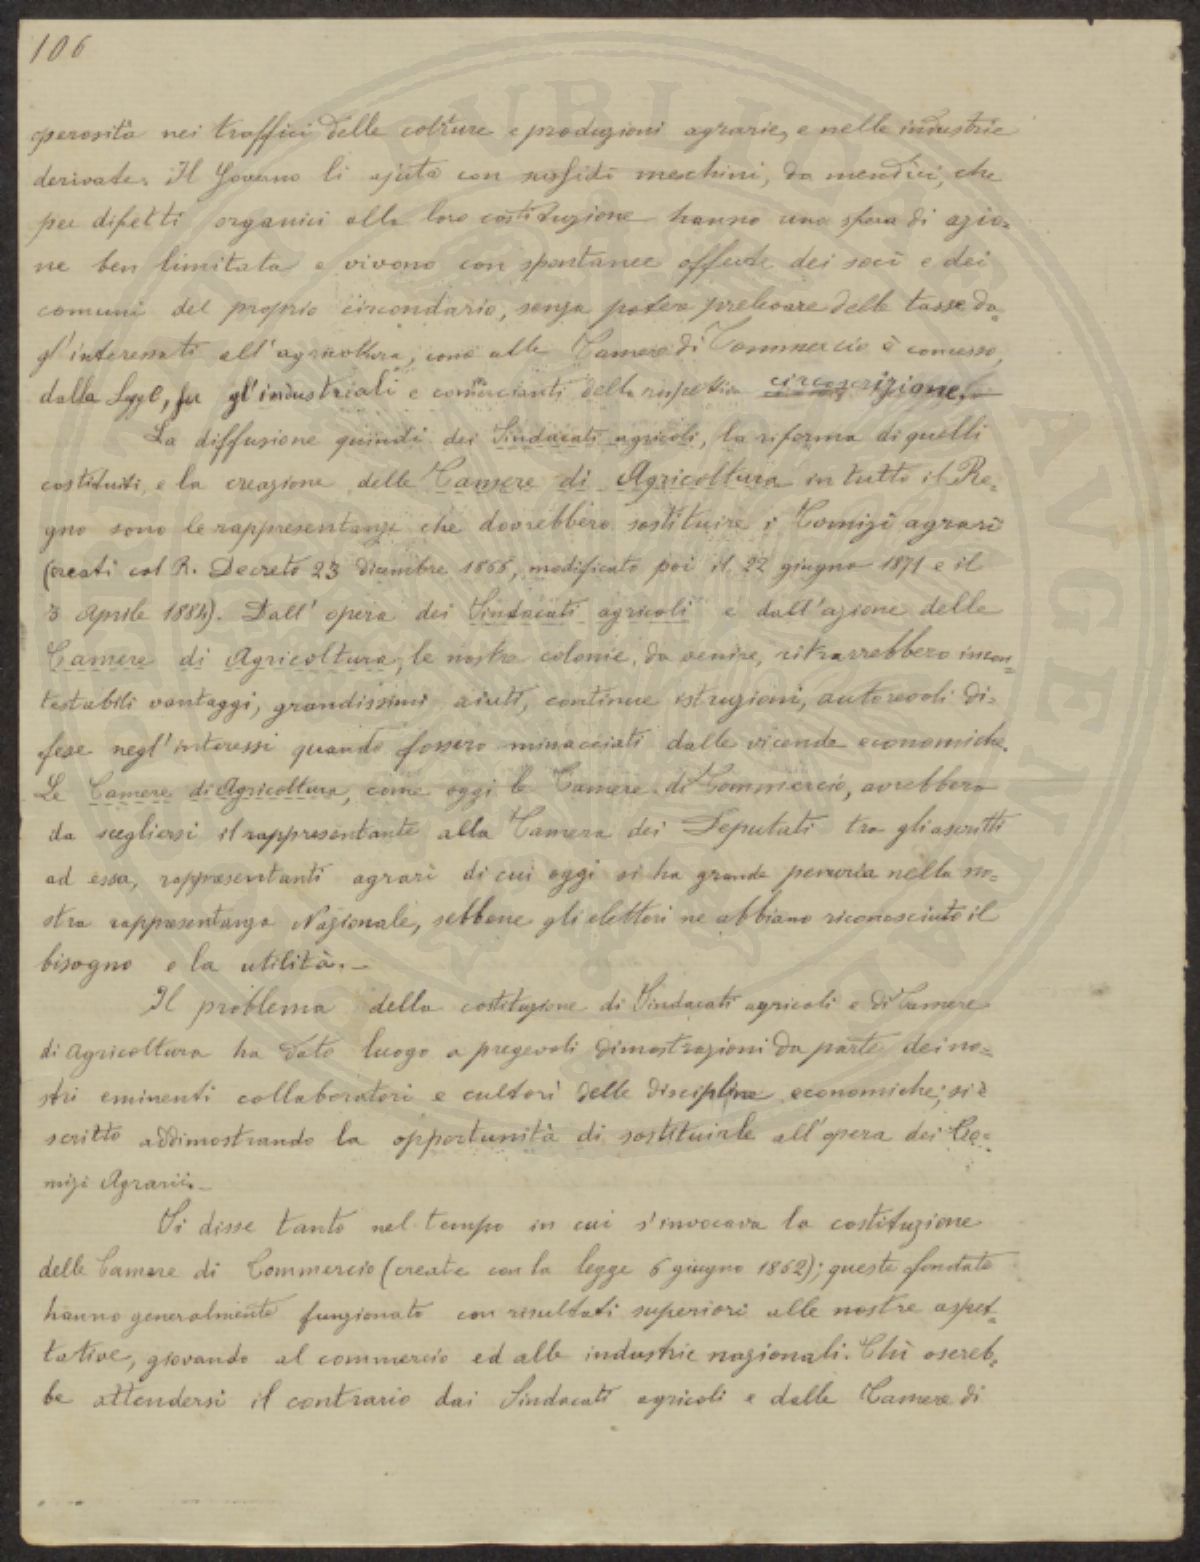 106
operosità nei traffici delle colture e produzioni agrarie, e nelle industrie
derivate. Il Governo li ajuta con sussidi meschini, da mendici, che
per difetti organici alla loro costituzione hanno una sfera di azio=
ne ben limitata e vivono con spontanee offerte dei soci e dei
comuni del proprio circondario, senza poter prelevare delle tasse da=
gl'interessati all'agricoltura, come alle Camere di Commercio è concesso,
dalla Legge, fra gl'industriali e comercianti della rispettiva circoscrizione.
La diffusione quindi dei Sindacati agricoli, la riforma di quelli
costituiti, e la creazione delle Camere di Agricoltura in tutto il Re=
gno sono le rappresentanze che dovrebbero sostituire i Comizi agrari
(creati col R. Decreto 23 dicembre 1866, modificato poi il 22 giugno 1871 e il
3 Aprile 1884). Dall'opera dei Sindacati agricoli e dall'azione delle
Camere di Agricoltura, le nostre colonie, da venire, ritrarrebbero incon=
testabili vantaggi, grandissimi aiuti, continue istruzioni, autorevoli di=
fese negl'interessi quando fossero minacciati dalle vicende economiche.
Le Camere di Agricoltura, come oggi le Camere di Commercio, avrebbero
da scegliersi il rappresentante alla Camera dei Deputati tra gli ascritti
ad essa, rappresentanti agrari di cui oggi si ha grande penuria nella no=
stra rappresentanza Nazionale, sebbene gli elettori ne abbiano riconosciuto il
bisogno e la utilità.-
Il problema della costituzione di Sindacati agricoli e di Camere
di Agricoltura ha dato luogo a pregevoli dimostrazioni da parte dei no=
stri eminenti collaboratori e cultori delle discipline economiche; si è
scritto addimostrando la opportunità di sostituirle all'opera dei Co=
mizi Agrarii.-
Si disse tanto nel tempo in cui s'invocava la costituzione
delle Camere di Commercio (create con la legge 6 giugno 1862); queste fondate
hanno generalmente funzionato con risultati superiori alle nostre aspet=
tative, giovando al commercio ed alle industrie nazionali. Chi osereb=
be attendersi il contrario dai Sindacati agricoli e dalle Camere di